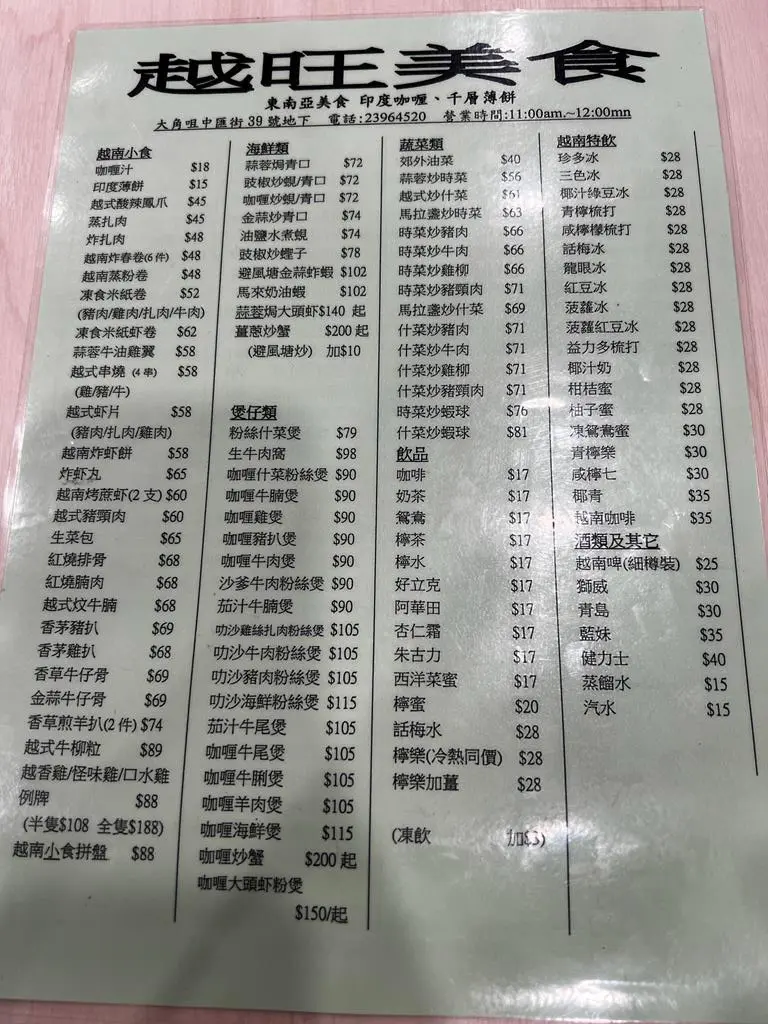 越旺美食
東南亞美食 印度咖喱、千層薄餅
大角咀中匯街39號地下 電話:23964520 營業時間:11:00am.~12:00mn
越南小食
咖喱汁 $18
印度薄餅 $15
越式酸辣鳳爪 $45
蒸扎肉 $45
炸扎肉 $48
越南炸春卷(6件) $48
越南蒸粉卷 $48
凍食米紙卷 $52
(豬肉/雞肉/扎肉/牛肉)
凍食米紙虾卷 $62
蒜蓉牛油雞翼 $58
越式串燒 (4串) $58
(雞/豬/牛)
越式虾片 $58
(豬肉/扎肉/雞肉)
越南炸虾餅 $58
炸虾丸 $65
越南烤蔗虾(2支) $60
越式豬頸肉 $60
生菜包 $65
紅燒排骨 $68
紅燒腩肉 $68
越式炆牛腩 $68
香茅豬扒 $69
香茅雞扒 $68
香草牛仔骨 $69
金蒜牛仔骨 $69
香草煎羊扒(2件) $74
越式牛柳粒 $89
越香雞/怪味雞/口水雞
例牌 $88
(半隻$108 全隻$188)
越南小食拼盤 $88
海鮮類
蒜蓉焗青口 $72
豉椒炒蜆/青口 $72
咖喱炒蜆/青口 $72
金蒜炒青口 $74
油鹽水煮蜆 $74
豉椒炒蟶子 $78
避風塘金蒜蚱蝦 $102
馬來奶油蝦 $102
蒜蓉焗大頭虾$140 起
薑蔥炒蟹 $200 起
(避風塘炒) 加$10
煲仔類
粉絲什菜煲 $79
生牛肉窩 $98
咖喱什菜粉絲煲 $90
咖喱牛腩煲 $90
咖喱雞煲 $90
咖喱豬扒煲 $90
咖喱牛肉煲 $90
沙爹牛肉粉絲煲 $90
茄汁牛腩煲 $90
叻沙雞絲扎肉粉絲煲 $105
叻沙牛肉粉絲煲 $105
叻沙豬肉粉絲煲 $105
叻沙海鮮粉絲煲 $115
茄汁牛尾煲 $105
咖喱牛尾煲 $105
咖喱牛脷煲 $105
咖喱羊肉煲 $105
咖喱海鮮煲 $115
咖喱炒蟹 $200 起
咖喱大頭虾粉煲
$150/起
蔬菜類
郊外油菜 $40
蒜蓉炒時菜 $56
越式炒什菜 $61
馬拉盞炒時菜 $63
時菜炒豬肉 $66
時菜炒牛肉 $66
時菜炒雞柳 $66
時菜炒豬頸肉 $71
馬拉盞炒什菜 $69
什菜炒豬肉 $71
什菜炒牛肉 $71
什菜炒雞柳 $71
什菜炒豬頸肉 $71
時菜炒蝦球 $76
什菜炒蝦球 $81
飲品
咖啡 $17
奶茶 $17
鴛鴦 $17
檸茶 $17
檸水 $17
好立克 $17
阿華田 $17
杏仁霜 $17
朱古力 $17
西洋菜蜜 $17
檸蜜 $20
話梅水 $28
檸樂(冷熱同價) $28
檸樂加薑 $28
(凍飲 加$3)
越南特飲
珍多冰 $28
三色冰 $28
椰汁綠豆冰 $28
青檸梳打 $28
咸檸檬梳打 $28
話梅冰 $28
龍眼冰 $28
紅豆冰 $28
菠蘿冰 $28
菠蘿紅豆冰 $28
益力多梳打 $28
椰汁奶 $28
柑桔蜜 $28
柚子蜜 $28
凍鴛鴦蜜 $30
青檸樂 $30
咸檸七 $30
椰青 $35
越南咖啡 $35
酒類及其它
越南啤(細樽裝) $25
獅威 $30
青島 $30
藍妹 $35
健力士 $40
蒸餾水 $15
汽水 $15